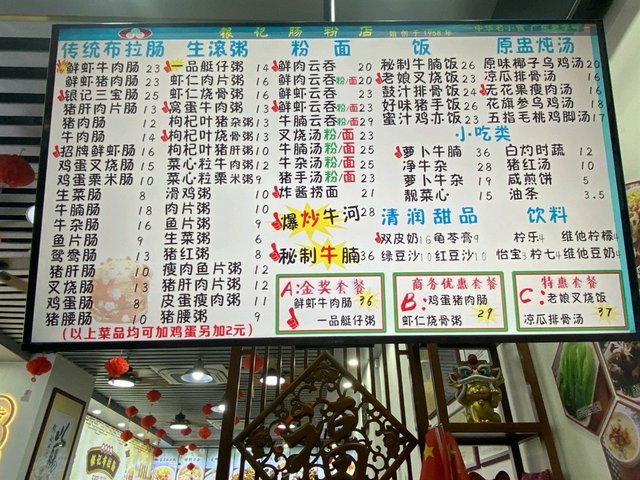 银记肠粉店
始创于1958年
传统布拉肠
鲜虾牛肉肠 23
鲜虾猪肉肠 23
银记三宝肠 25
猪肝肉片肠 13
牛肉肠 12
牛肉肠 14
招牌鲜虾肠 16
鸡蛋叉烧肠 15
鸡蛋栗米肠 10
生菜肠 8
牛腩肠 18
牛杂肠 16
鱼片肠 13
鸳鸯肠 13
猪肝肠 10
叉烧肠 13
鸡蛋肠 8
猪腰肠 10
(以上菜品均可加鸡蛋另加2元)
生滚粥
一品艇仔粥 14
虾仁肉片粥 16
虾仁烧骨粥 16
窝蛋牛肉粥 13
枸杞叶猪杂粥 13
枸杞叶烧骨粥 13
菜心粒牛肉粥 12
菜心粒栗米粥 9
滑鸡粥 10
肉片粥 10
鱼片粥 9
生菜粥 6
猪红粥 8
瘦肉鱼片粥 12
猪肝粥 10
皮蛋瘦肉粥 10
猪腰粥 9
粉 面
鲜肉云吞 20
鲜肉云吞粉/面 20
鲜虾云吞 23
鲜虾云吞粉/面 23
牛腩云吞粉/面 29
叉烧汤粉/面 23
牛腩汤粉/面 23
牛杂汤粉/面 23
猪手汤粉/面 23
炸酱捞面 21
爆炒牛河 28
秘制牛腩 36
饭
秘制牛腩饭 26
老娘叉烧饭 23
鼓汁排骨饭 24
好味猪手饭 26
蜜汁鸡亦饭 23
原盅炖汤
原味椰子乌鸡汤 20
凉瓜排骨汤 17
无花果瘦肉汤 17
花旗参乌鸡汤 18
五指毛桃鸡脚汤 17
小吃类
萝卜牛腩 36
净牛杂 28
萝卜牛杂 19
靓菜心 15
白灼时蔬 12
猪红汤 10
咸煎饼 5
油茶 3.5
清润甜品
双皮奶 16 龟苓膏 9
绿豆沙 10 红豆沙 10
饮料
柠乐 4 维他柠檬 4
怡宝 3 柠七 4 维他豆奶 4
A:金奖套餐
鲜虾牛肉肠 36
一品艇仔粥
商务优惠套餐
B:鸡蛋猪肉肠
虾仁烧骨粥 29
特惠套餐
C:老娘叉烧饭
凉瓜排骨汤 37
福